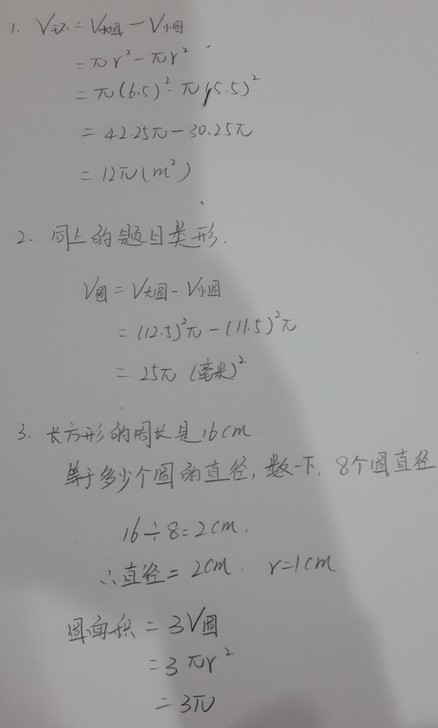 1. V环 = V大圆 - V小圆
= πr² - πr²
= π(6.5)² - π(5.5)²
= 42.25π - 30.25π
= 12π(m²)
2. 同上的题目类形.
V圆 = V大圆 - V小圆
= (12.5)²π - (11.5)²π
= 25π (毫米)²
3. 长方形的周长是16cm
等于多少个圆的直径, 数一下, 8个圆直径
16÷8=2cm.
∴直径= 2cm r=1cm
圆面积 = 3V圆
= 3πr²
= 3π